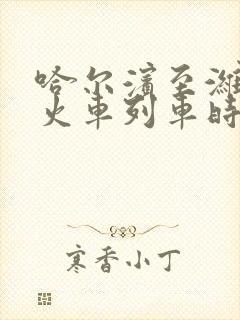 哈尔滨至潍
火車列車時
寒香小丁